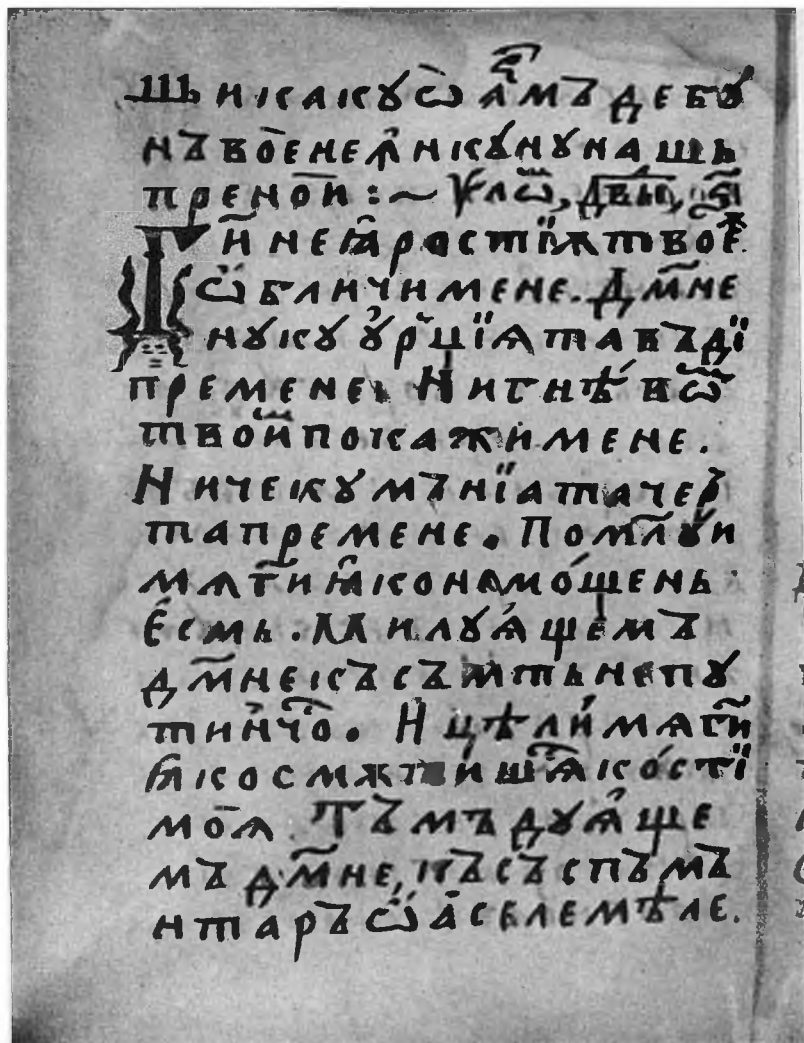 шь ни кака кꙋ ѡ а҆рмъ дебꙋ
нъ вое не а҆нкꙋнꙋнашь
пренои :~ Ѱалѡⷨ, дв҃дь, ѕ҃
Г҃и не ꙗ҆ростїѫ твоеѫ
ѡ҆бличи мене. Дм҃не
нꙋкꙋ ꙋ҆рцїѧ та въдї
премене. Ни гнѣвѡⷨ
твоиⷨ покажи мене.
Ниче кꙋ мънїа та чер
та премене. Помл҃ꙋи
мѧ ги҃ ꙗ҆ко немощень
е҆смь. Милꙋѧ҆щемъ
дм҃не къ съмть непꙋ
тинчо. И цѣли мѧ ги҃
ꙗ҆ко смѫтишѧⷭ кости
моѧ Тъмъдꙋѧ҆ще
мъ дм҃не, къ съ спъмъ
нтаръ ѡ҆а҆селе мѣле.